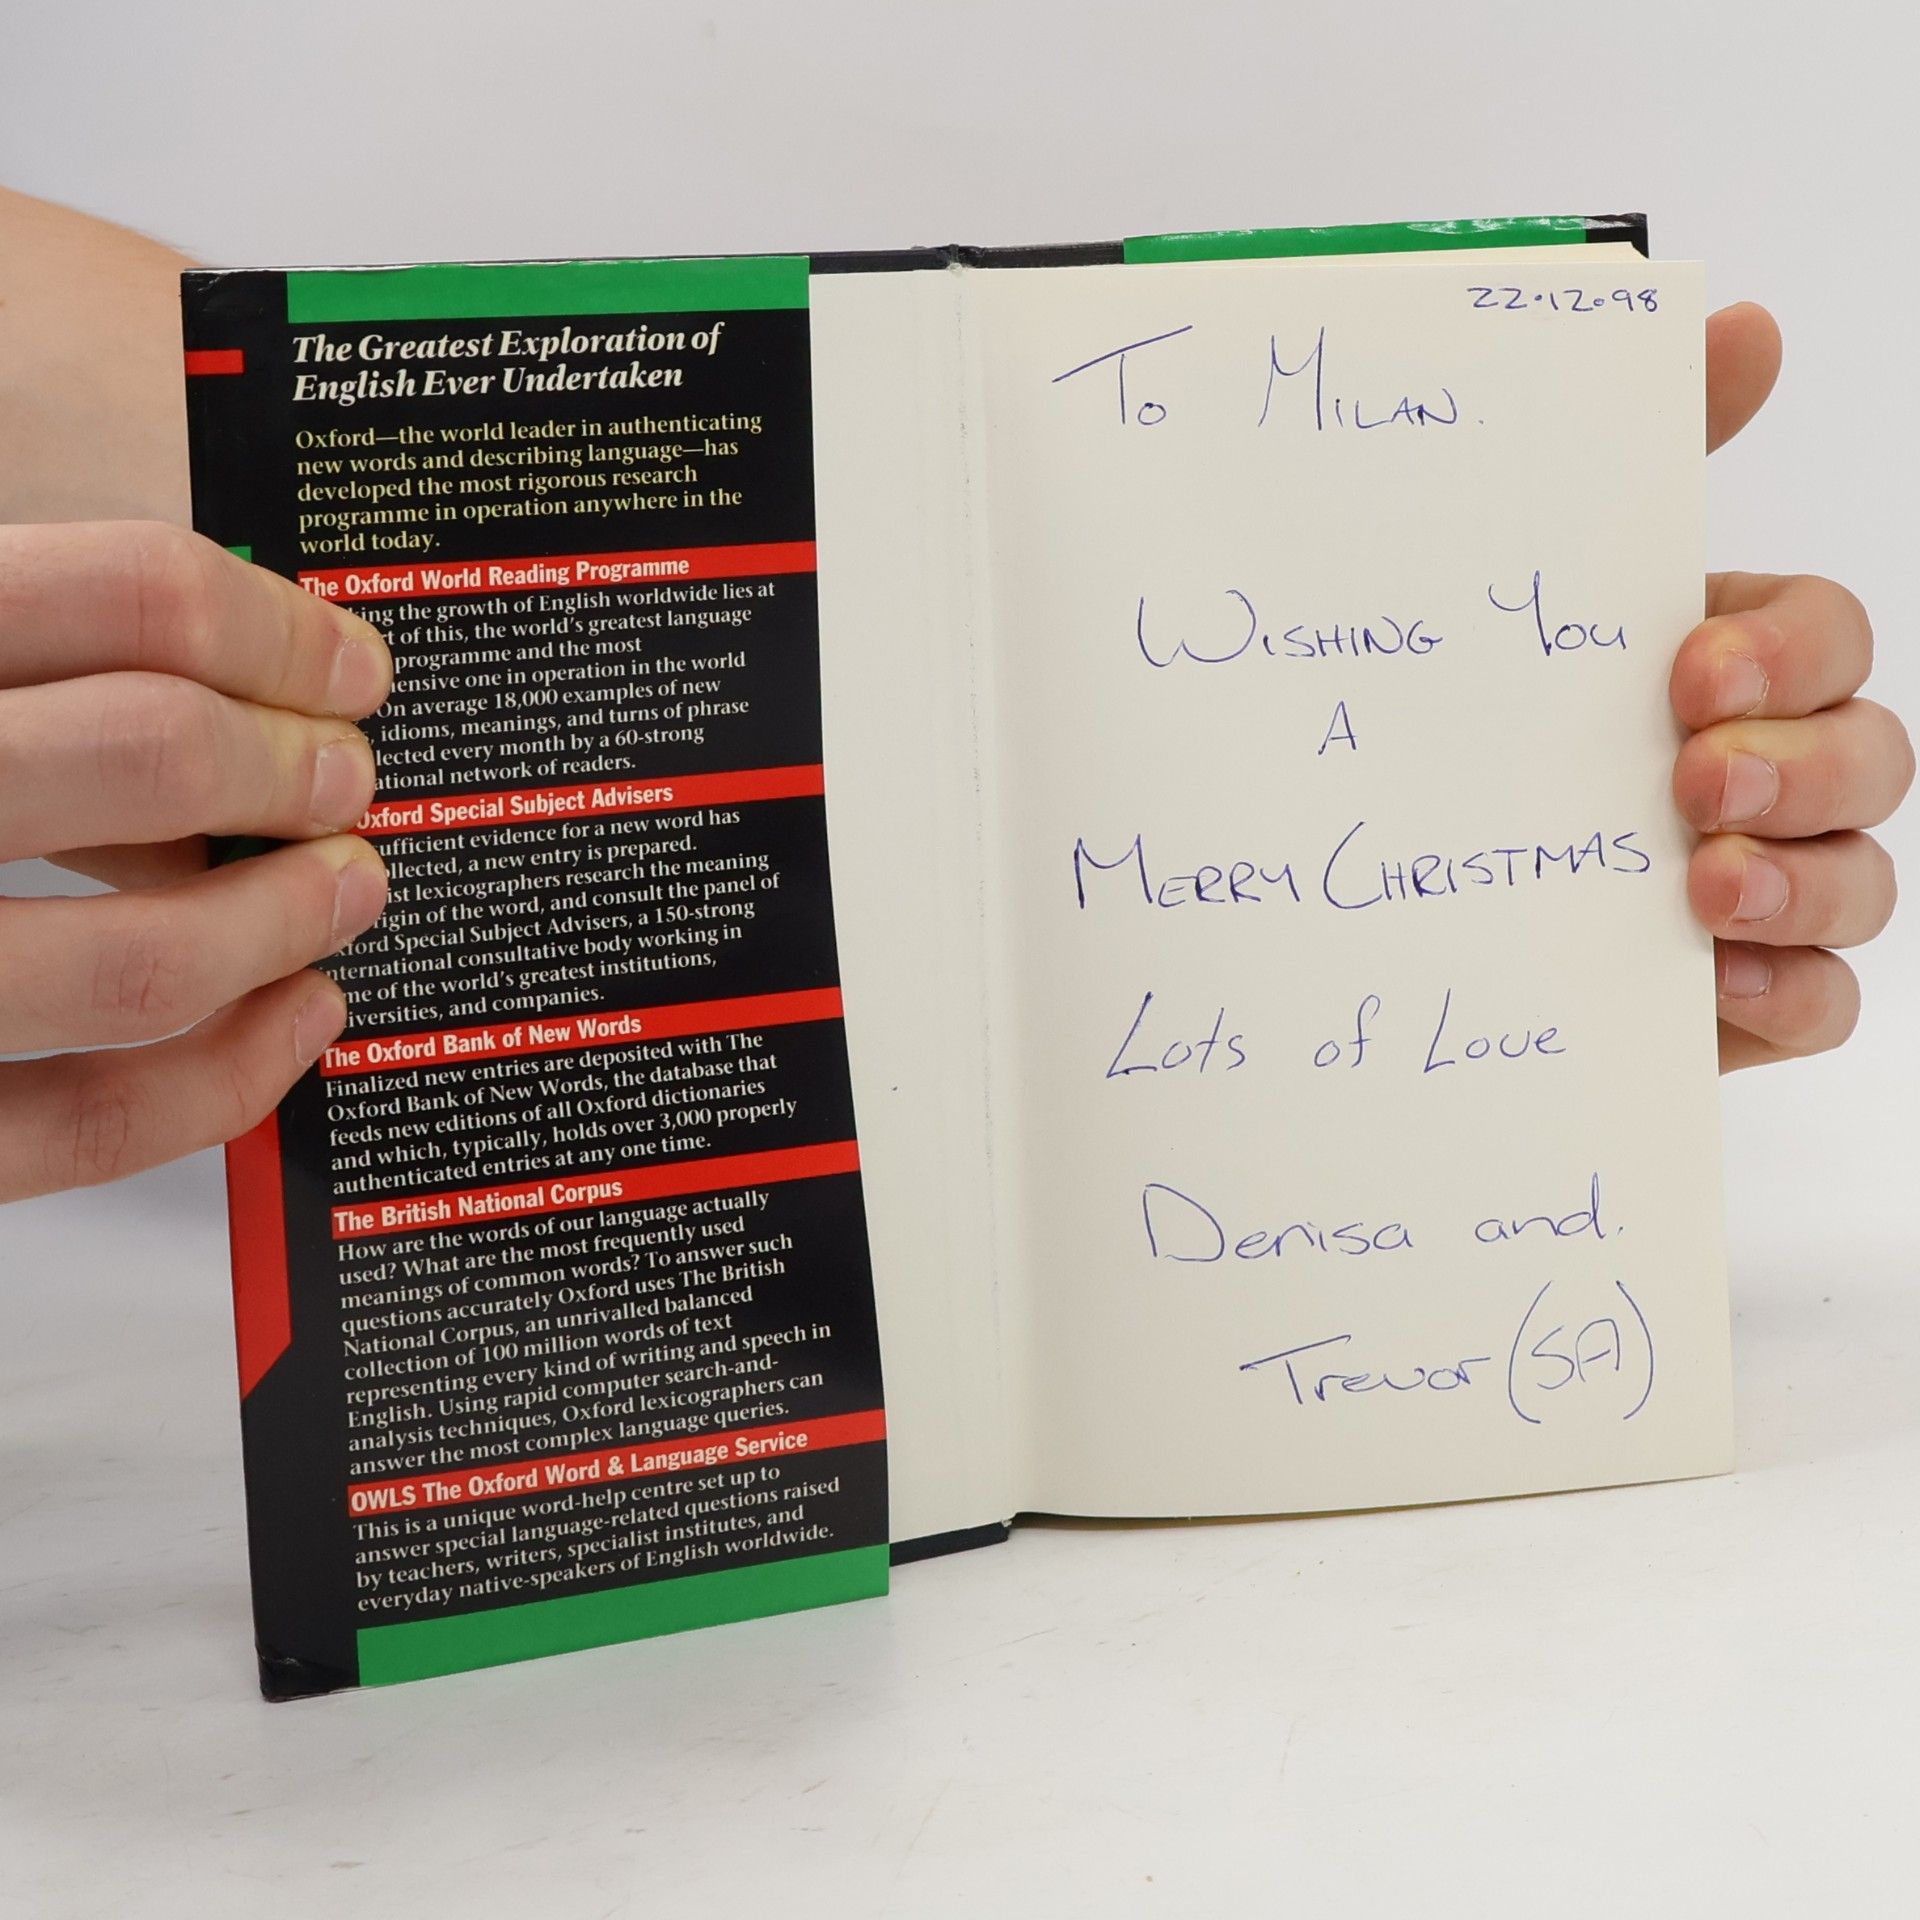 The Greatest Exploration of
English Ever Undertaken
Oxford—the world leader in authenticating
new words and describing language—has
developed the most rigorous research
programme in operation anywhere in the
world today.
The Oxford World Reading Programme
the growth of English worldwide lies at
of this, the world's greatest language
programme and the most
one in operation in the world
On average 18,000 examples of new
idioms, meanings, and turns of phrase
every month by a 60-strong
network of readers.
Oxford Special Subject Advisers
evidence for a new word has
a new entry is prepared.
lexicographers research the meaning
of the word, and consult the panel of
Special Subject Advisers, a 150-strong
international consultative body working in
of the world's greatest institutions,
and companies.
The Oxford Bank of New Words
Finalized new entries are deposited with The
Oxford Bank of New Words, the database that
feeds new editions of all Oxford dictionaries
and which, typically, holds over 3,000 properly
authenticated entries at any one time.
The British National Corpus
How are the words of our language actually
used? What are the most frequently used
meanings of common words? To answer such
questions accurately Oxford uses The British
National Corpus, an unrivalled balanced
collection of 100 million words of text
representing every kind of writing and speech in
English. Using rapid computer search-and-
analysis techniques, Oxford lexicographers can
answer the most complex language queries.
OWLS The Oxford Word & Language Service
This is a unique word-help centre set up to
answer special language-related questions raised
by teachers, writers, specialist institutes, and
everyday native-speakers of English worldwide.
22.12.98
To MILAN.
WISHING You
A
MERRY CHRISTMAS
Lots of Love
Denisa and.
Trevor (SA)